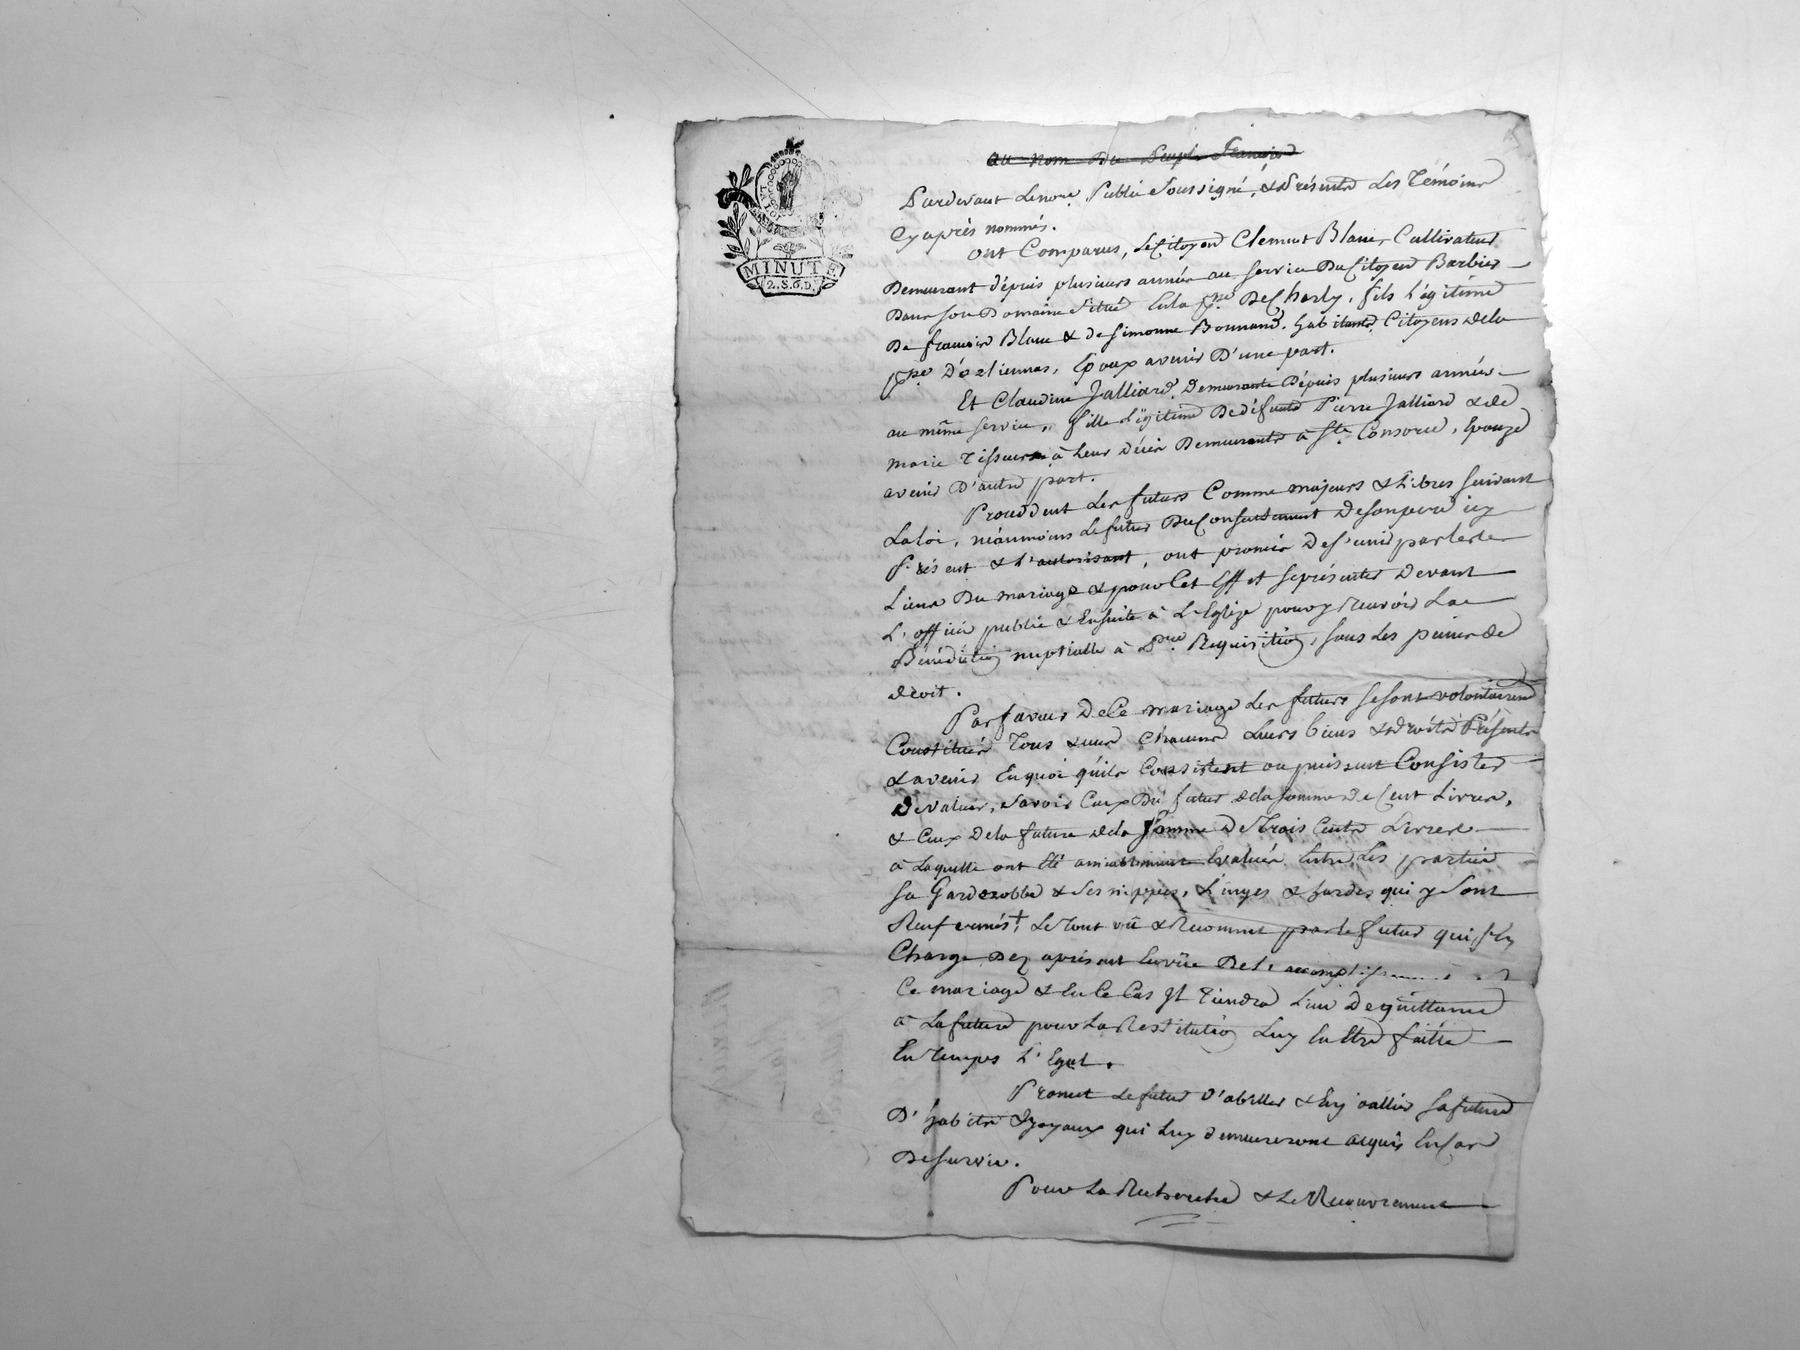 MINUTE
2.S.6.D.
au nom Du Peuple francois
Pardevant Lenore. Public Soussigné, & Présents Les Témoins
Cy après nommés.
ont Comparus, Le Citoyen Clement Blanc, Cultivateur
Demeurant dépuis plusieurs années au service Du Citoyen Barbier
Dans son Domaine situé En la psse De Charly, fils Légitime
De francois Blanc & de Simonne Bonnand. habitants Citoyens de la
psse D'orliennas, Epoux avenir D'une part.
Et Claudine Jalliard Demeurante Dépuis plusieurs années
au même service, fille Légitime De défunts Pierre Jalliard & de
marie Tisseur à Leur décès Demeurants à Ste Consorce, Epouze
avenir D'autre part.
Procèddent Les futurs Comme majeurs & Libres suivant
La loi, néanmoins Le futur Du Consentement De son pere icy
Présent & L'autorisant, ont promis De s'unir par Les
Liens Du mariage & pour Cet Effet se présenter Devant
L'officier public & Ensuite à L'Eglize pour y Recevoir La
Bénédiction nuptialle à 1ere Requisition, sous Les peines de
droit.
Par faveur De Ce mariage Les futurs se sont volontairemt
Constitués Tous & uns Chacuns Leurs biens & droits Présents
& avenir En quoi qu'ils Consistent ou puissent Consister
De valeur, savoir Ceux Du futur de la somme de Cent Livres,
& Ceux De la future de la Somme De Trois Cents Livres
à Laquelle ont été amiablement Evalués Entre Les parties
sa Garderobbe & ses nippes, Linges & hardes qui y sont
Renfermés+, Le Tout vû & Reconnut par le futur qui s'en
Charge Dez apresent En vüe De L'accomplissement
Ce mariage & En Ce Cas Il Tiendra Lieu De quittance
à La future pour La Restitution Luy En Etre faitte
En Temps L'Egal.
Promet Le futur D'abiller & Enjoallier sa future
D'habits & Joyaux qui Luy demeureront acquis En Cas
De survie.
Pour La Recherche & Le Recouvrement